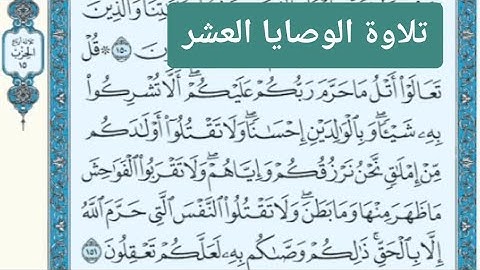 تلاوة الوصايا العشر
ثلاثة أرباع
الحزب
١٥
وَالَّذِينَ
١٥٠ ۞ قُلْ
تَعَالَوْا۟ أَتْلُ مَا حَرَّمَ رَبُّكُمْ عَلَيْكُمْ ۖ أَلَّا تُشْرِكُوا۟
بِهِۦ شَيْـًٔا ۖ وَبِٱلْوَٰلِدَيْنِ إِحْسَـٰنًا ۖ وَلَا تَقْتُلُوٓا۟ أَوْلَـٰدَكُم
مِّنْ إِمْلَـٰقٍ ۖ نَّحْنُ نَرْزُقُكُمْ وَإِيَّاهُمْ ۖ وَلَا تَقْرَبُوا۟ ٱلْفَوَٰحِشَ
مَا ظَهَرَ مِنْهَا وَمَا بَطَنَ ۖ وَلَا تَقْتُلُوا۟ ٱلنَّفْسَ ٱلَّتِى حَرَّمَ ٱللَّهُ
إِلَّا بِٱلْحَقِّ ۚ ذَٰلِكُمْ وَصَّىٰكُم بِهِۦ لَعَلَّكُمْ تَعْقِلُونَ ١٥١